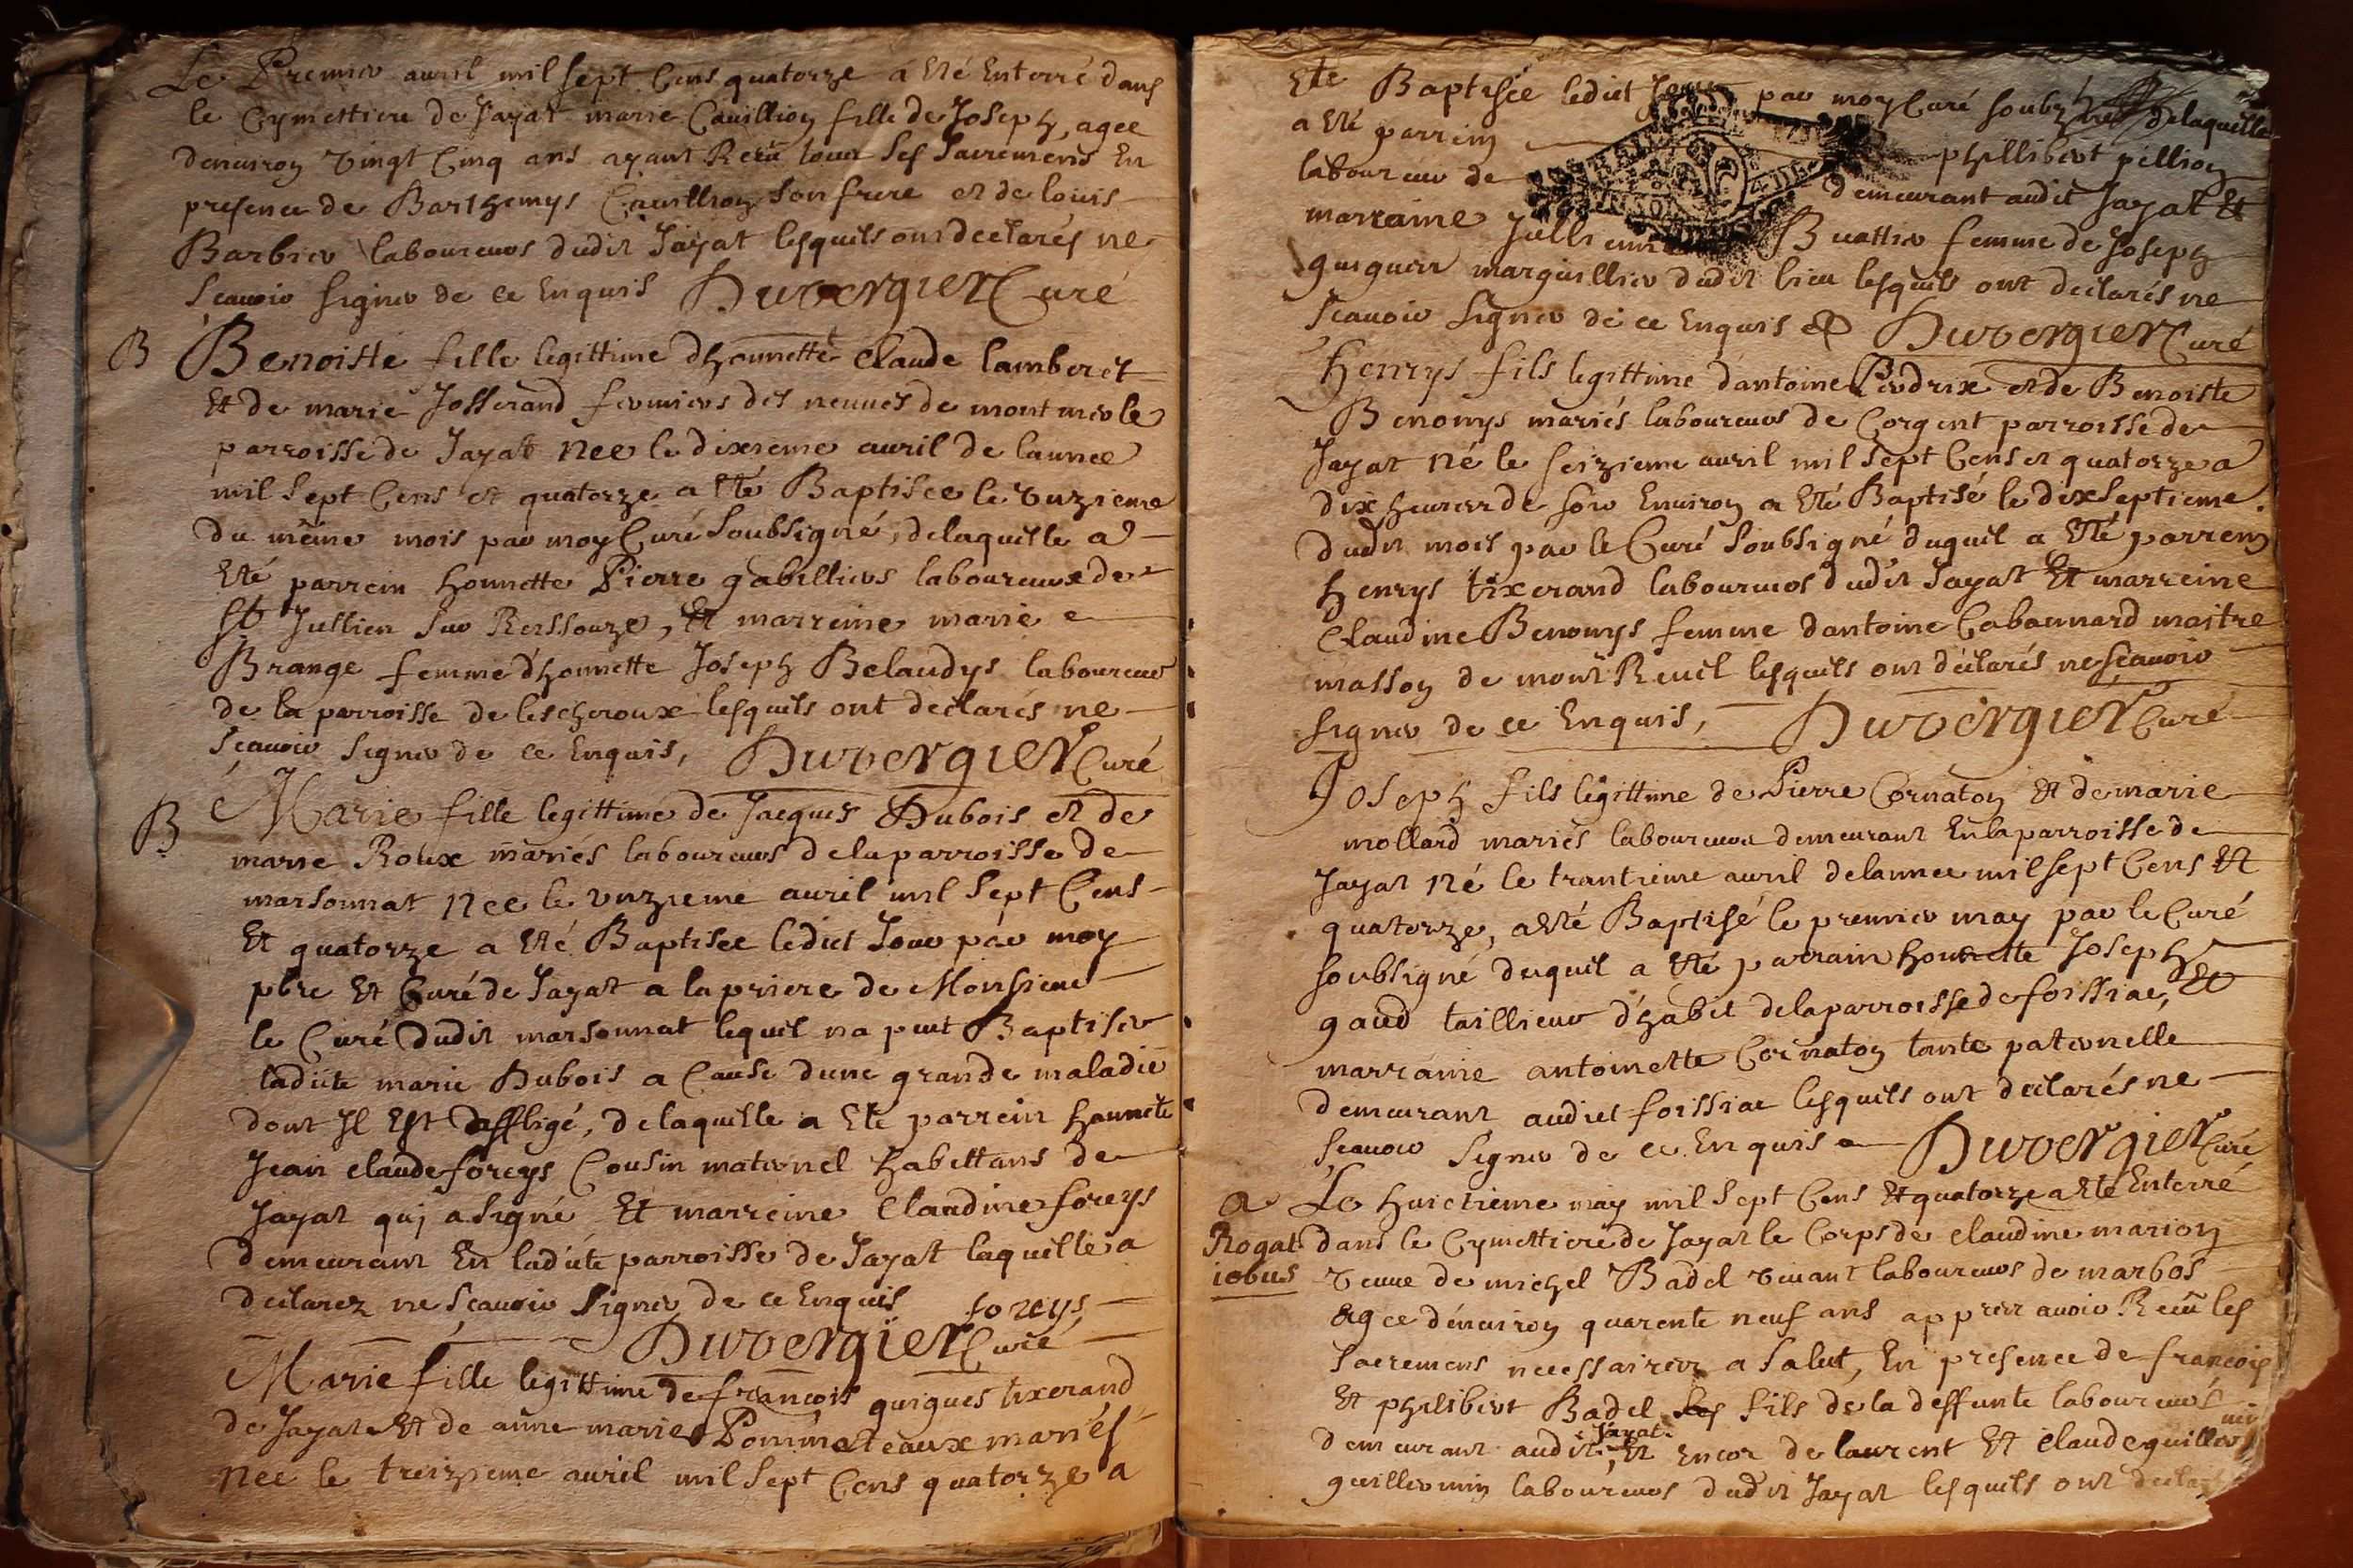 Le Premier auril mil sept Cens quatorze a êté Enterré dans
le Cymettiere de Jayat marie Cauillion fille de Joseph, agee
denuiron vingt Cinq ans ayant Receü tous ses Sacremens En
presence de Barthemys Cauillion son frere et de louis
Barbier laboureurs dudit Jayat lesquels ont declarés ne
scauoir signer de ce Enquis Duvergier Curé
B Benoiste fille legittime dhonnette Claude lamberet
Et de marie Josserand fermiers des neuues de mont merle
parroisse de Jayat Nee le dixieme auril de lannee
mil sept Cens et quatorze a êté Baptisee le vnzieme
du même mois par moy Curé soubsigné, delaquelle a
êté parrein honnette Pierre gabilliers laboureur de
St Jullien sur Ressouze, Et marreine marie
Brange femme d'honnette Joseph Belaudys laboureur
de la parroisse de lescheroux lesquels ont declarés ne
sçauoir signer de ce Enquis, Duvergier Curé
B Marie fille legittime de Jacques Dubois et de
marie Roux mariés laboureurs de la parroisse de
marsonnat Nee le vnzieme auril mil sept Cens
Et quatorze a êté Baptisee ledict Jour par moy
pbre Et Curé de Jayat a la priere de Monsieur
le Curé dudit marsonnat lequel na put Baptiser
ladicte marie Dubois a Cause dune grande maladie
dont Jl Est affligé, delaquelle a Eté parrein honnete
Jean claude foreys Cousin maternel habittans de
Jayat quj a signé Et marreine Claudine foreys
demeurant En ladicte parroisse de Jayat laquelle a
declarez ne sçauoir signer de ce Enquis foreys
Duvergier Curé
Marie fille legittime de françois guigues tixerand
de Jayat Et de anne marie Pommateaux mariés
Nee le treizieme auril mil sept Cens quatorze a
Ete Baptisée ledict Jour par moy Curé soubz delaquelle
a êté parrein phillibert pellion
laboureur de demeurant audit Jayat Et
marraine Jullienne Buattier femme de Joseph
marguillier dudit lieu lesquels ont declarés ne
scauoir signer de ce Enquis Duvergier Curé
Henrys fils legittime dantoine Perdrix et de Benoiste
Benomys mariés laboureurs de Corgent parroisse de
Jayat Né le seizieme auril mil sept Cens et quatorze a
dix heures de soir Enuiron a êté Baptisé le dixseptieme
dudit mois par le Curé soubsigné duquel a êté parrein
Henrys tixerand laboureur dudit Jayat Et marreine
Claudine Benomys femme dantoine Cabaunard maitre
masson de mont Reuil lesquels ont déclarés ne sçauoir
signer de ce Enquis, Duvergier Curé
Joseph fils legittime de Pierre Cornaton Et de marie
mollard mariés laboureurs demeurant En la parroisse de
Jayat Né le trantieme auril de lannee mil sept Cens Et
quatorze, a êté Baptisé le premier may par le Curé
soubsigné duquel a êté parrain honnette Joseph
gaud taillieur d'habit de la parroisse de foissiac, Et
marraine antoinette Cornaton tante paternelle
demeurant audict foissiac lesquels ont declarés ne
scauoir signer de ce Enquis Duvergier Curé
a Le huictieme may mil sept Cens Et quatorze a êté Enterré
Rogat dans le Cymettiere de Jayat le Corps de claudine marion
iobus veuue de michel Badel viuant laboureur de marbos
agee dénuiron quarente neuf ans appres auoir Receü les
sacremens necessaires a salut, En presence de françois
Et philibert Badel fils de la deffunte laboureurs
demeurant audit Jayat, Et Encor de laurent Et claude
guillermin laboureurs dudit Jayat lesquels ont